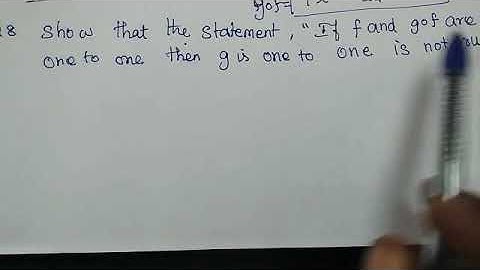 gof=
8 Show that the statement, "If f and gof are
one to one then g is one to one is not